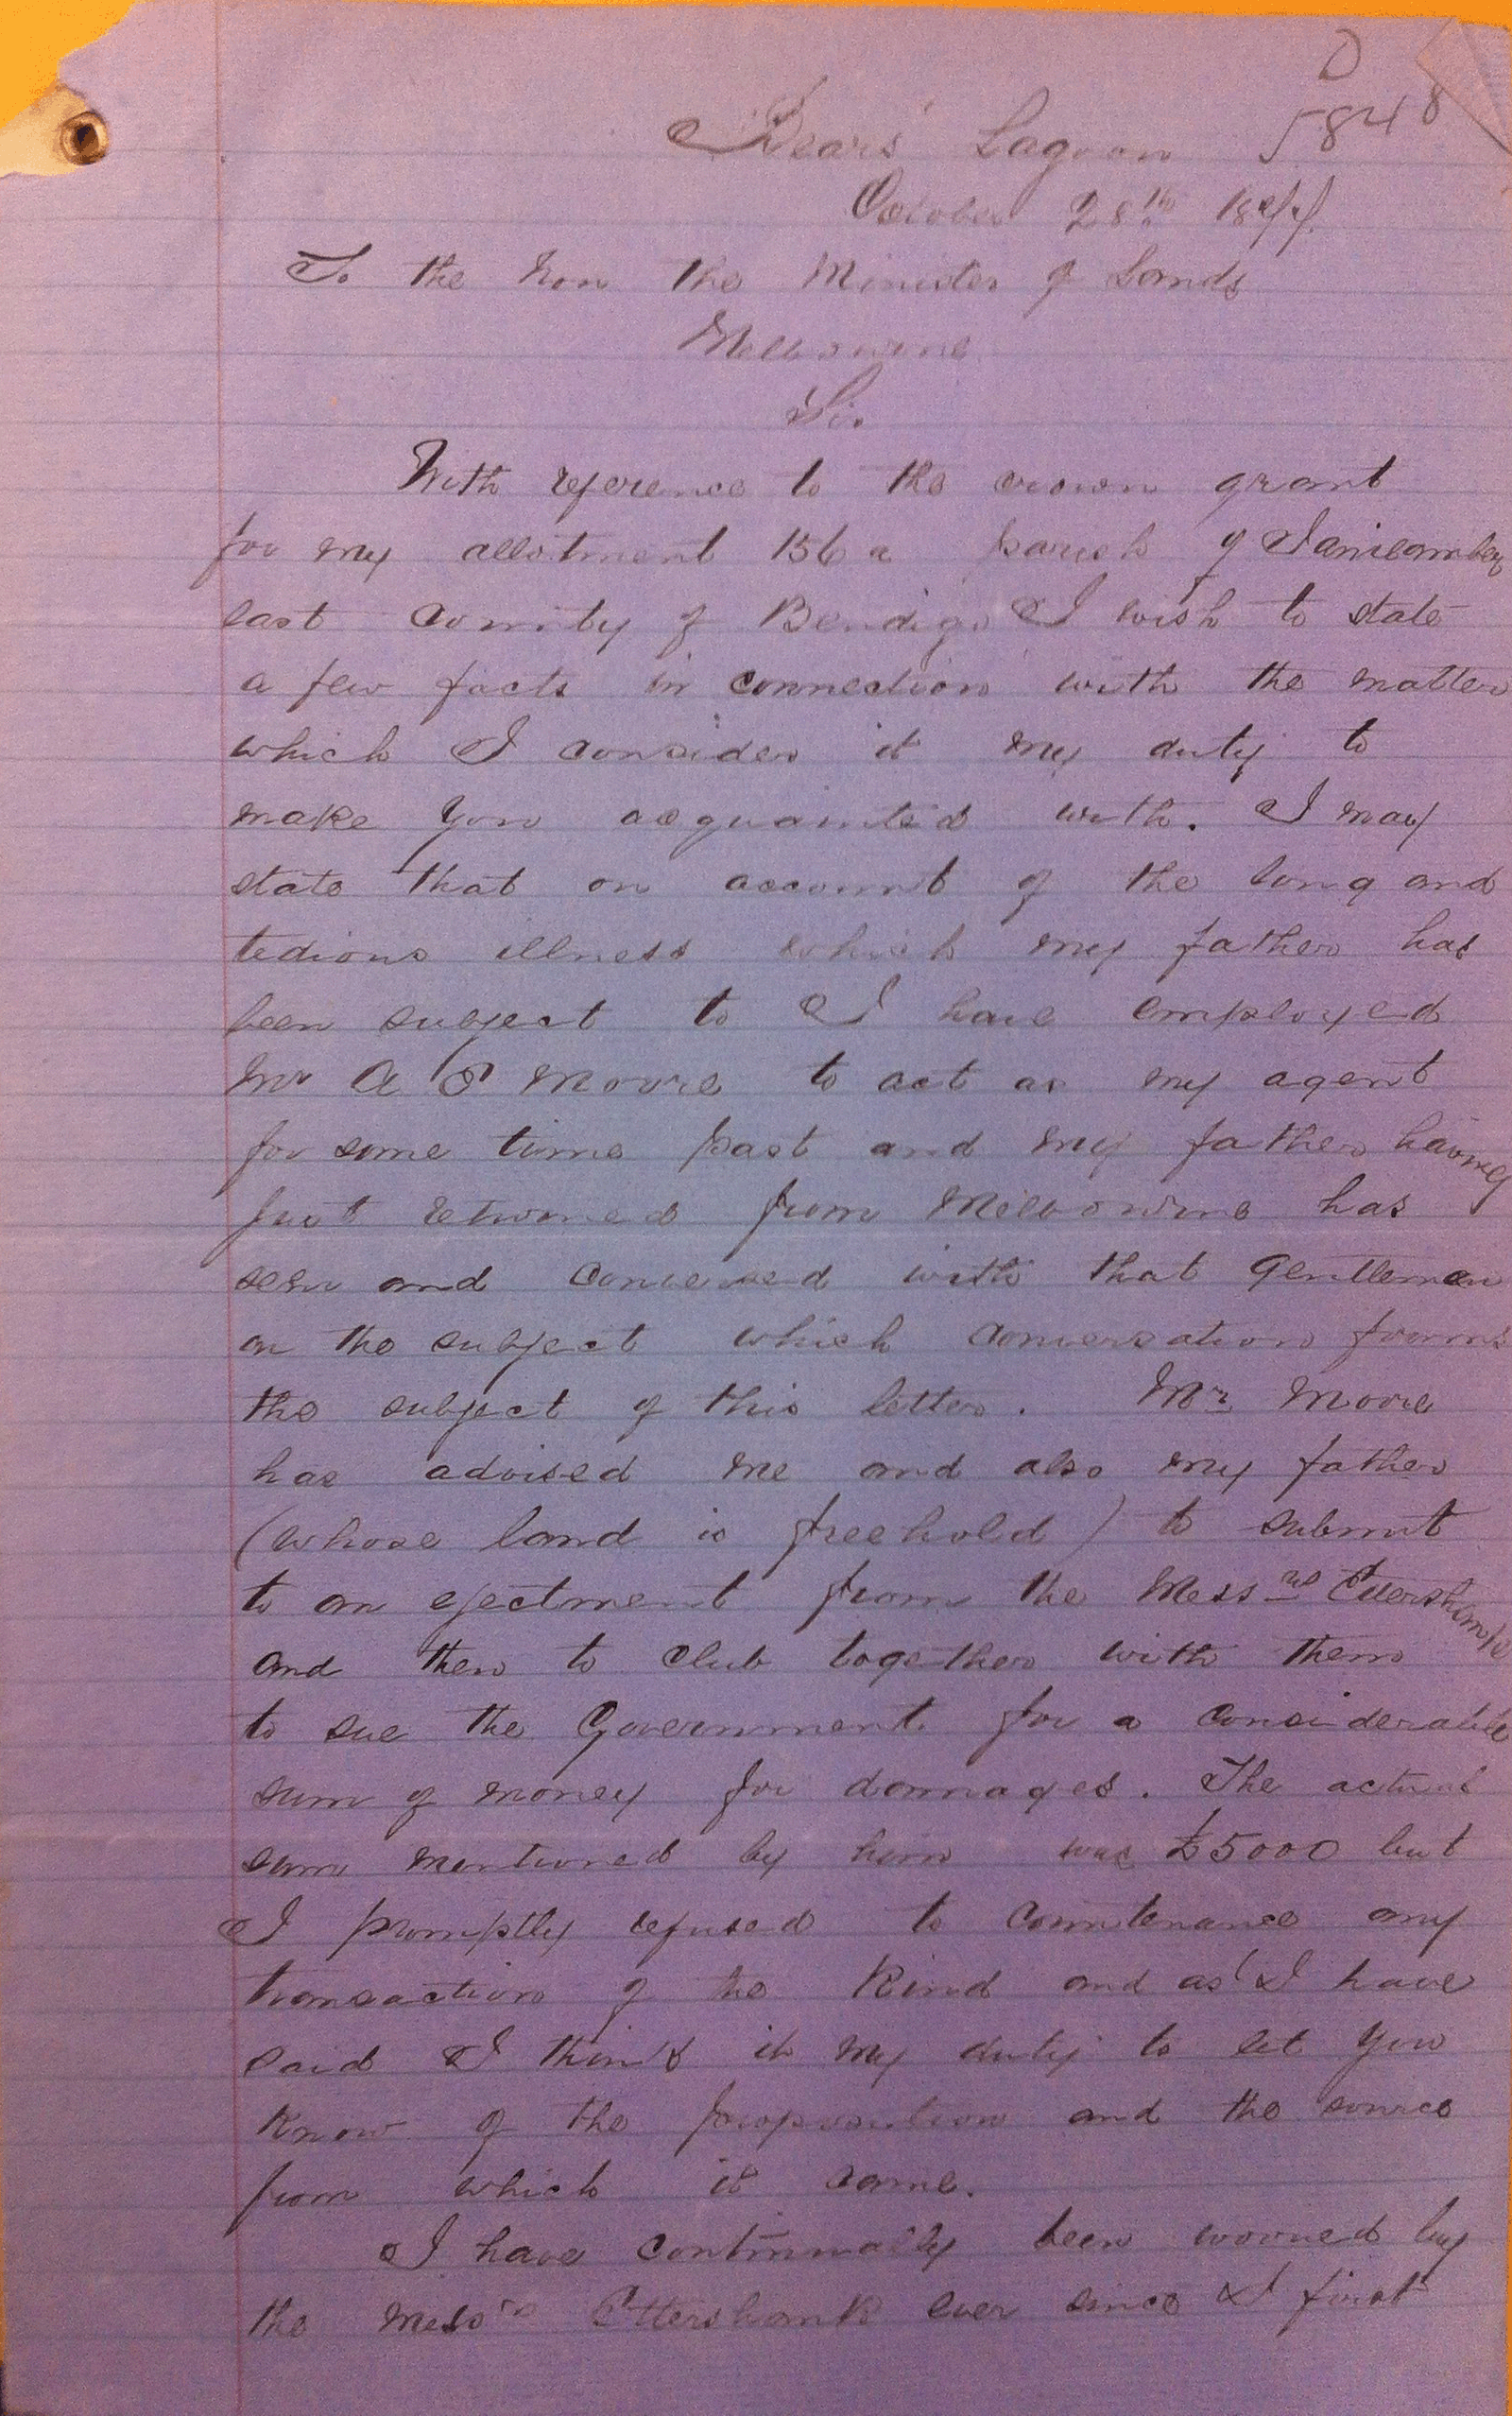 D
5848
Dears' Lagoon
October 28th 1877.
To the Hon the Minister of Lands
Melbourne
Sir.
With reference to the crown grant
for my allotment 156a parish of
East County of Bendigo I wish to state
a few facts in connection with the matter
which I consider it my duty to
make you acquainted with. I may
state that on account of the long and
tedious illness which my father has
been subject to I have employed
Mr A Moore to act as my agent
for some time past and my father having
just returned from Melbourne has
seen and conversed with that gentleman
on the subject which conversation forms
the subject of this letter. Mr Moore
has advised me and also my father
(whose land is freehold) to submit
to an ejectment from the Messrs Ettershank
and then to club together with them
to sue the Government for a considerable
sum of money for damages. The actual
sum mentioned by him was £5000 but
I promptly refused to countenance any
transaction of the kind and as I have
said I think it my duty to let you
know of the proposition and the source
from which it came.
I have continually been worried by
the Messrs Ettershank ever since I first